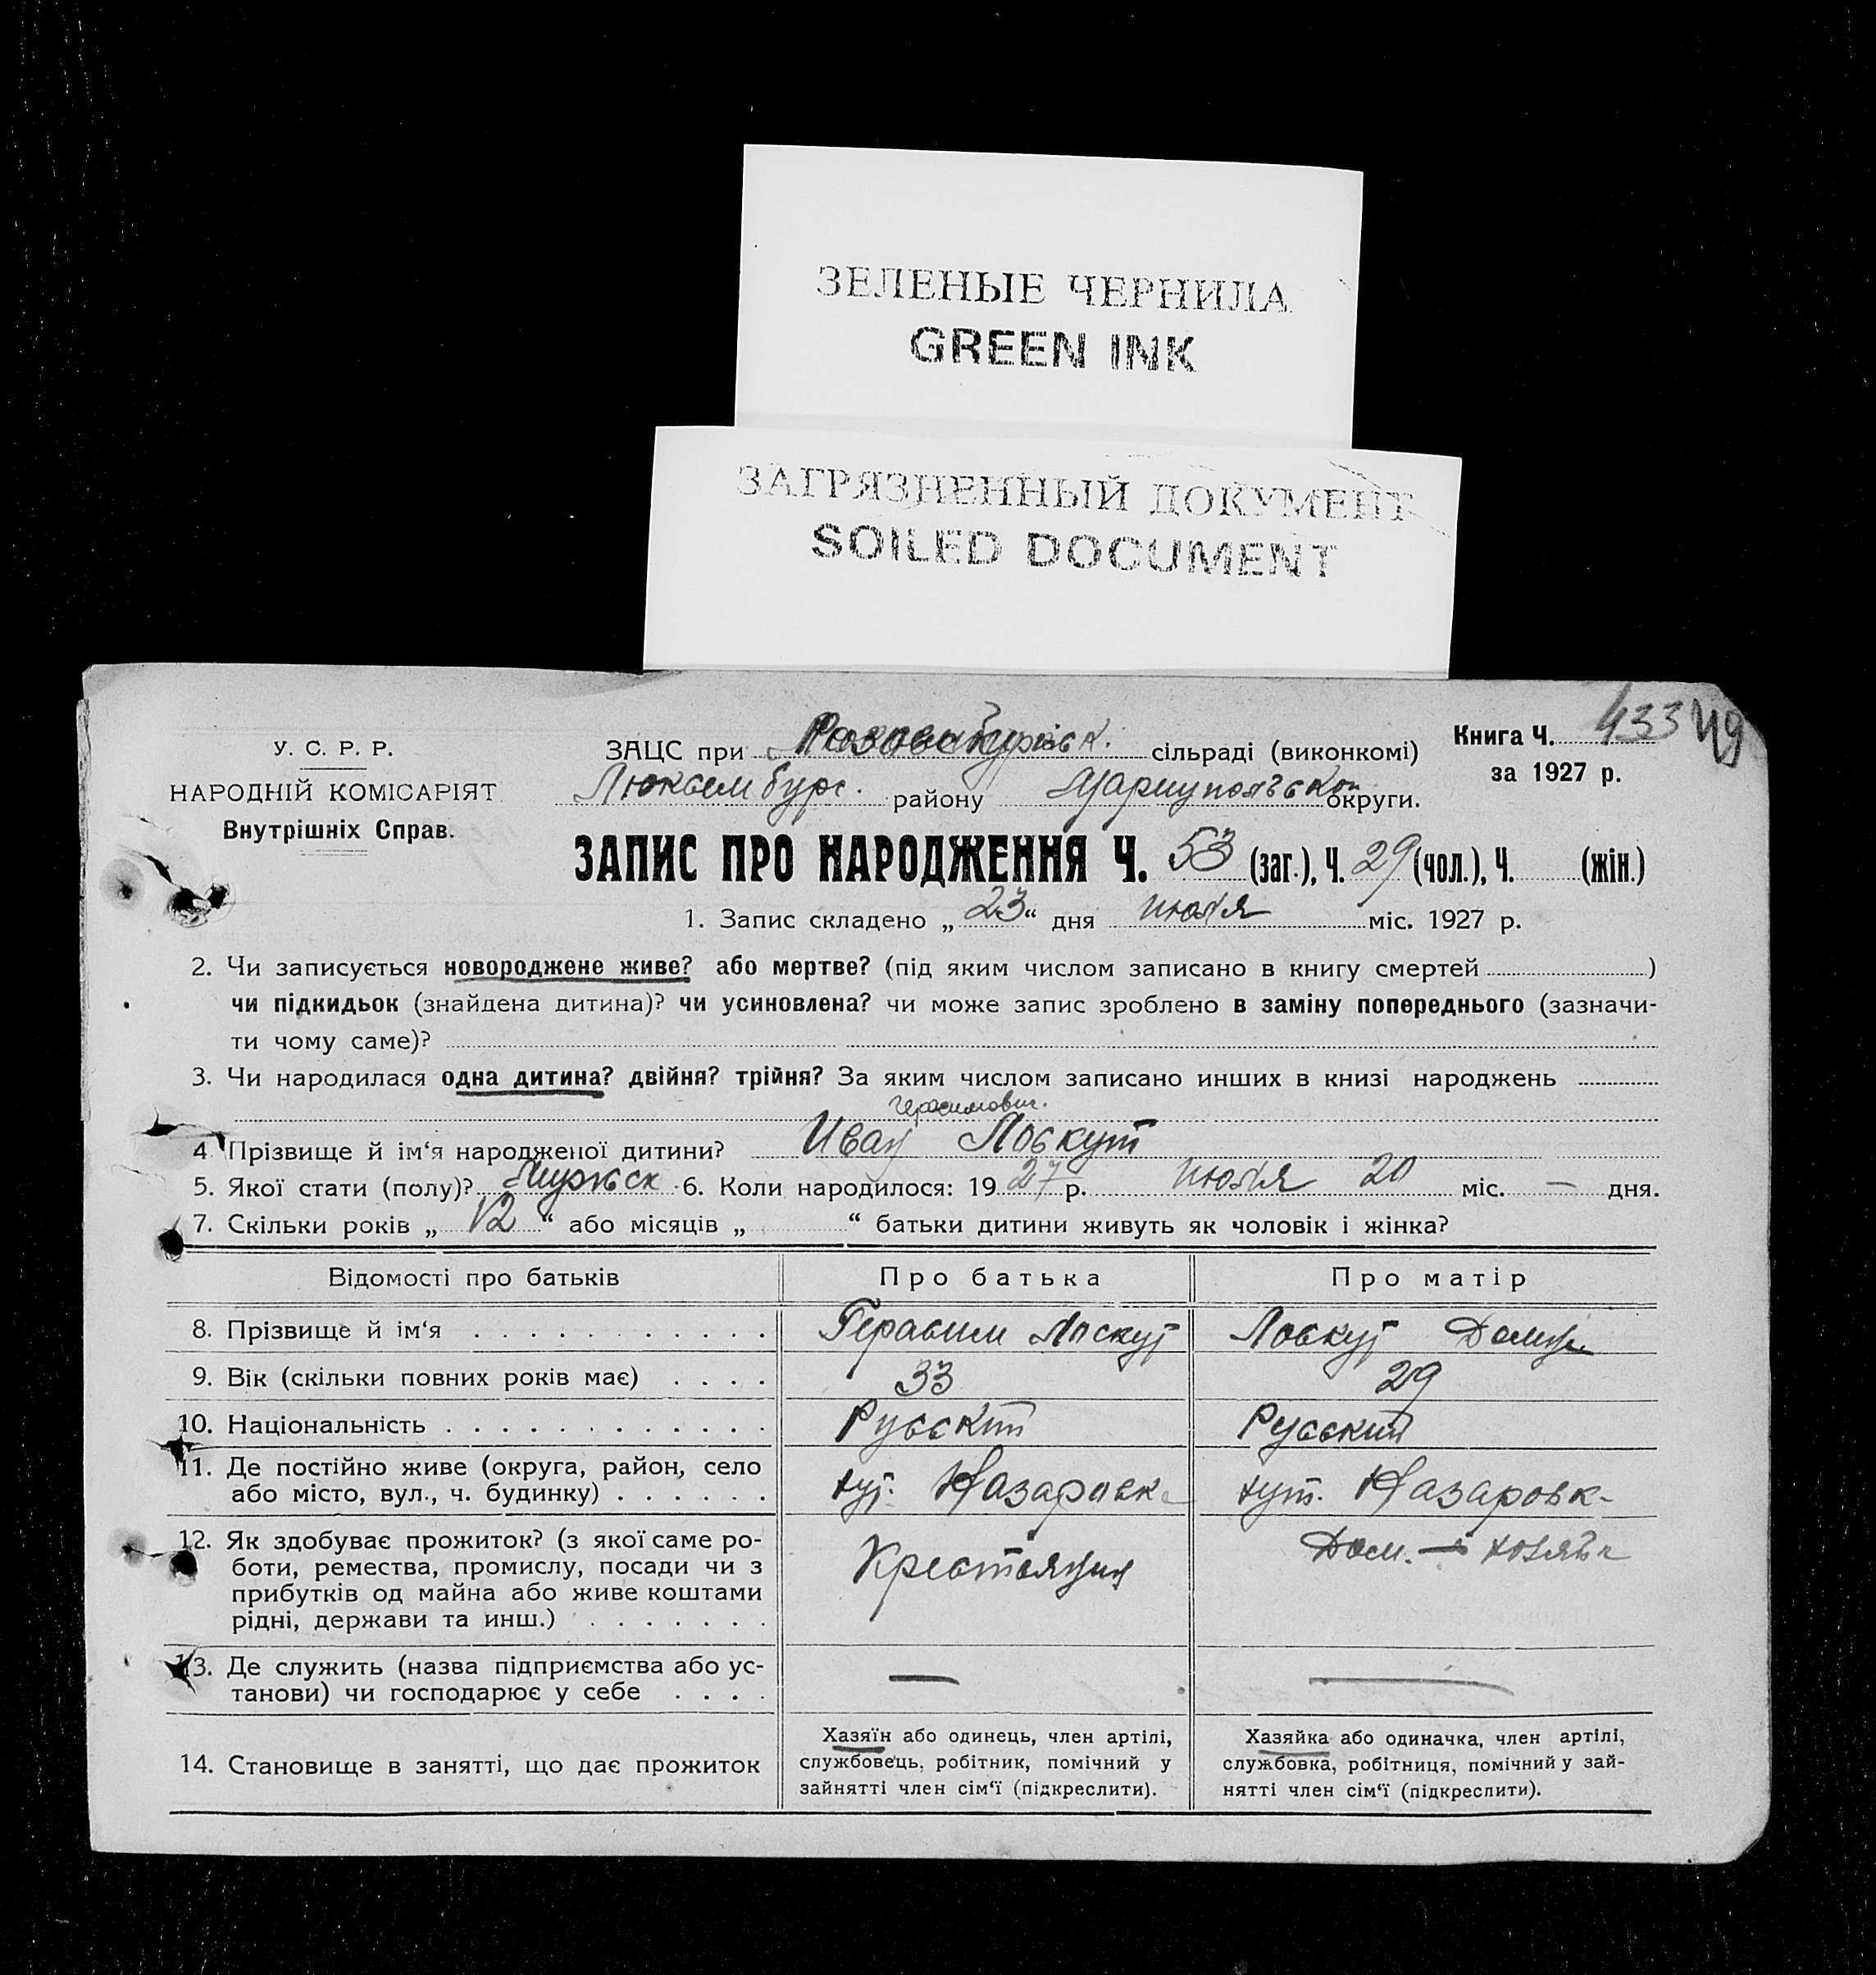 ЗЕЛЕНЫЕ ЧЕРНИЛА
GREEN INK
ЗАГРЯЗНЕННЫЙ ДОКУМЕНТ
SOILED DOCUMENT
433 49
У. С. Р. Р.
НАРОДНІЙ КОМІСАРІЯТ
Внутрішніх Справ.
ЗАЦС при сільраді (виконкомі)
Люксембург. району Мариупольской округи.
Книга Ч.
за 1927 р.
ЗАПИС ПРО НАРОДЖЕННЯ Ч. 53 (заг.), Ч. 29 (чол.), Ч. (жін.)
1. Запис складено „ 23 “ дня июля міс. 1927 р.
2. Чи записується новороджене живе? або мертве? (під яким числом записано в книгу смертей )
чи підкидьок (знайдена дитина)? чи усиновлена? чи може запис зроблено в заміну попереднього (зазначи-
ти чому саме)?
3. Чи народилася одна дитина? двійня? трійня? За яким числом записано инших в книзі народжень
Герасимович.
4 Прізвище й ім‘я народженої дитини? Иван Лоскут
5. Якої стати (полу)? Мужск 6. Коли народилося: 1927 р. июля 20 міс. — дня.
7. Скільки років „ 12 “ або місяців „ “ батьки дитини живуть як чоловік і жінка?
Відомості про батьків Про батька Про матір
8. Прізвище й ім‘я Герасим Лоскут Лоскут
9. Вік (скільки повних років має) 33 29
10. Національність Русский Русский
11. Де постійно живе (округа, район, село
або місто, вул., ч. будинку) хут. Назаровк хут. Назаровк-
12. Як здобуває прожиток? (з якої саме ро-
боти, ремества, промислу, посади чи з
прибутків од майна або живе коштами
рідні, держави та инш.) Крестьянин Дом. — хозяйк
13. Де служить (назва підприємства або ус-
танови) чи господарює у себе — —
14. Становище в занятті, що дає прожиток
Хазяїн або одинець, член артілі,
службовець, робітник, помічний у
зайнятті член сім‘ї (підкреслити).
Хазяйка або одиначка, член артілі,
службовка, робітниця, помічний у зай-
нятті член сім‘ї (підкреслити).